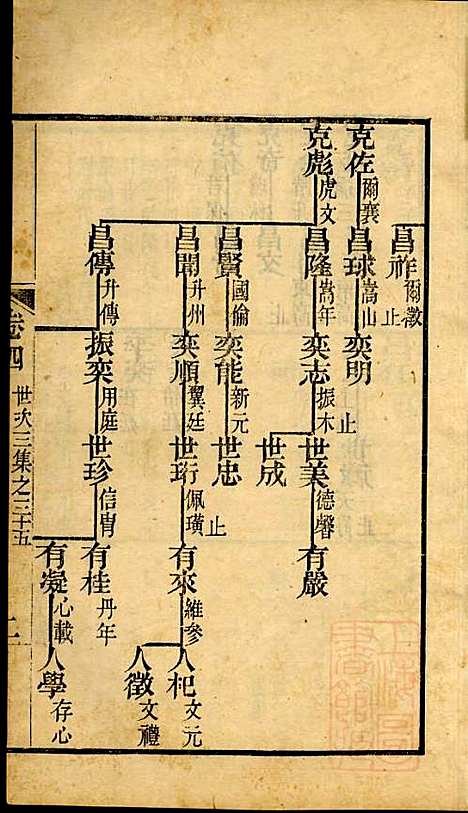 昌祚 字爾徵 止
克佐 爾襄
昌球 嵩山
奕明
克彪 虎文
昌隆 嵩年
奕志 振木 止
世美 德馨
有嚴
世成
昌賢 國倫
奕能 新元
世忠 止
昌聞 升州
奕順 翼廷
世珩 佩璜
有來 維參
人杞 文元
人徵 文禮
昌傳 升傳
振奕 用庭
世珍 信胄
有桂 丹年
有凝 心載
人學 存心
卷四 世次三集之三十五